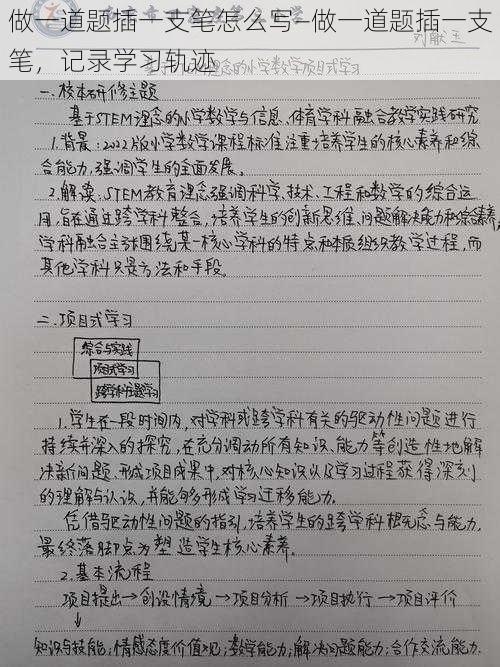 做一道题插一支笔怎么写—做一道题插一支
笔，记录学习轨迹
念的小学数学项目式学习
一.校本研修主题
基于STEM理念的小学数学与信息、体育学科融合教学实践研究
1.背景：2022版小学数学课程标准注重培养学生的核心素养和综
合能力，强调学生的全面发展。
2.解读：STEM教育理念强调科学、技术、工程和数学的综合运
用，旨在通过跨学科整合，培养学生的创新思维、问题解决能力和综合素养，
学科融合主动围绕某一核心学科的特点和本质组织教学过程，而
其他学科只是方法和手段。
二.项目式学习
综合与实践
项目式学习
跨学科主题学习
1.学生在一段时间内，对学科或跨学科有关的驱动性问题进行
持续并深入的探究，在充分调动所有知识、能力等创造性地解
决新问题、形成项目成果中，对核心知识以及学习过程获得深刻
的理解与认识，并能够形成学习迁移能力。
凭借驱动性问题的指引，培养学生的跨学科概念与能力，
最终落脚点为塑造学生核心素养。
2.基本流程
项目提出→创设情境→项目分析→项目执行→项目评价
↓
知识与技能；情感态度价值观；数学能力；解决问题能力；合作交流能力.